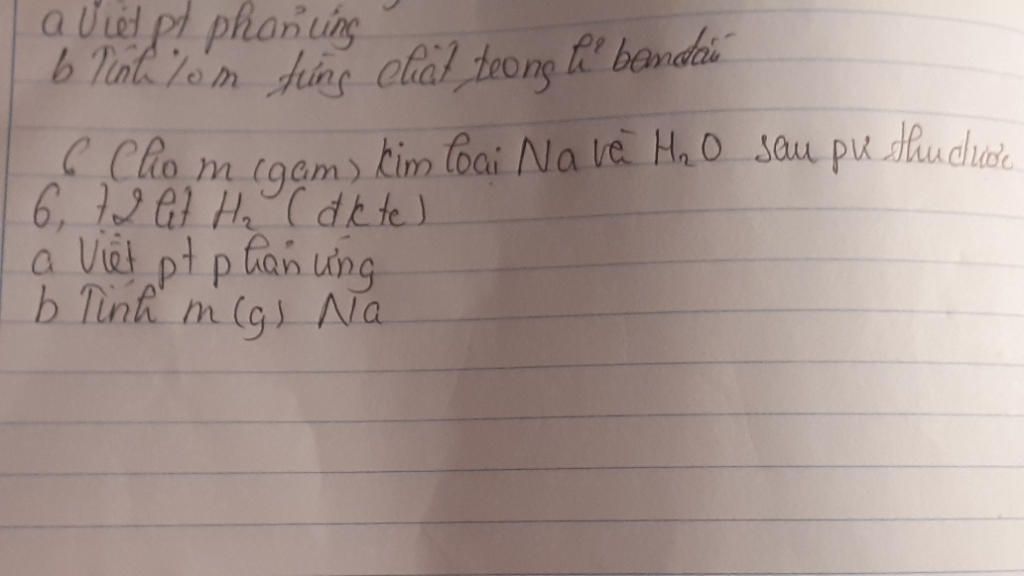 a Viết pt phản ứng
b Tính % m từng chất trong h² ban đầu
6 Cho m (gam) kim loại Na và H₂O sau pư thu được
6,72 lít H₂ (đktc)
a Viết pt phản ứng
b Tính m (g) Na